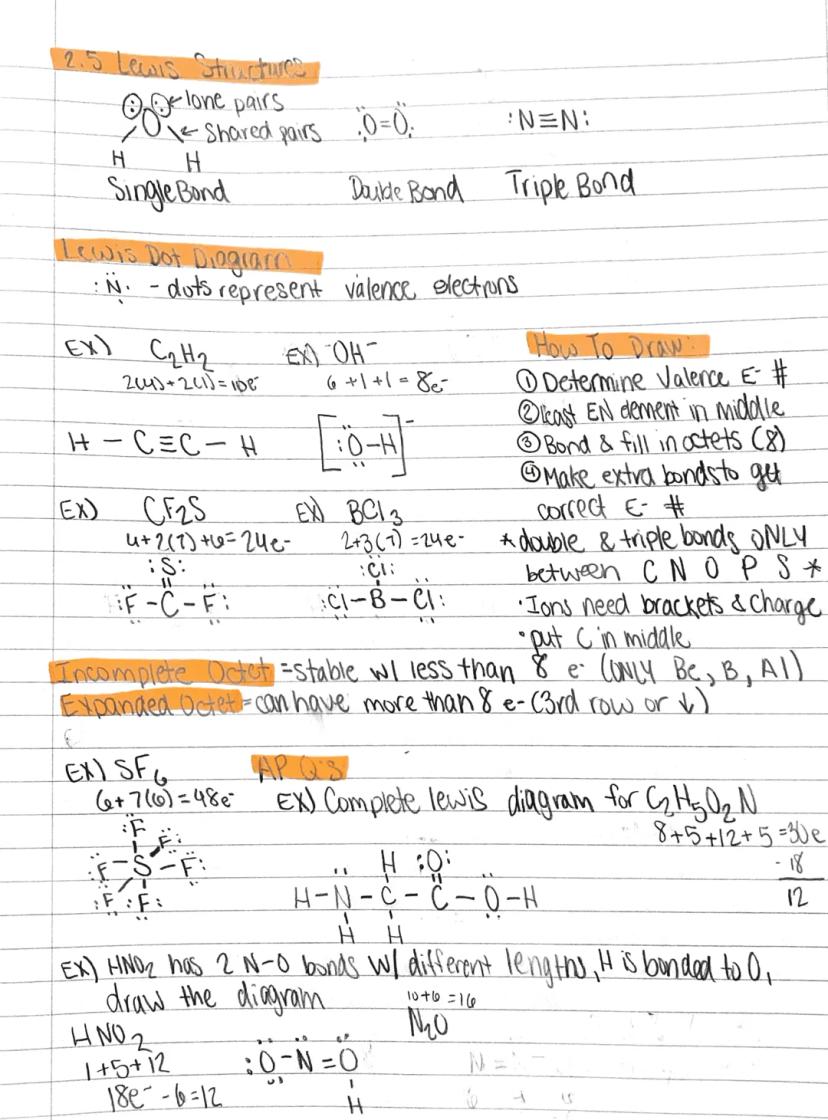 2.5 Lewis Structures
lone pairs
O Shared pairs Ö=Ö :N≡N:
H H
Single Bond Double Bond Triple Bond
Lewis Dot Diagram
:N· - dots represent valence electrons
EX) C₂H₂ EX) OH⁻
2(4)+2(1)=10e⁻ 6+1+1=8e⁻
H - C≡C - H [:O-H]⁻
How To Draw:
① Determine Valence E- #
② least EN element in middle
③ Bond & fill in octets (8)
④ Make extra bonds to get
correct E- #
* double & triple bonds ONLY
between C N O P S *
· Ions need brackets & charge
· put C in middle
EX) CF₂S EX) BCl₃
4+2(7)+6=24e- 2+3(7)=24e-
:S: :Cl:
:F-C-F: :Cl-B-Cl:
Incomplete Octet = stable w/ less than 8 e- (ONLY Be, B, Al)
Expanded Octet = can have more than 8 e- (3rd row or ↓)
EX) SF₆ AP Q's
6+7(6)=48e⁻ EX) Complete lewis diagram for C₂H₅O₂N
8+5+12+5=30e
- 18
12
:F F:
:F-S-F:
:F :F:
H :O:
H-N-C-C-O-H
H H
EX) HNO₂ has 2 N-O bonds w/ different lengths, H is bonded to O,
draw the diagram 10+6=16
N₂O
HNO₂
1+5+12 :O-N=O
18e⁻-6=12 H